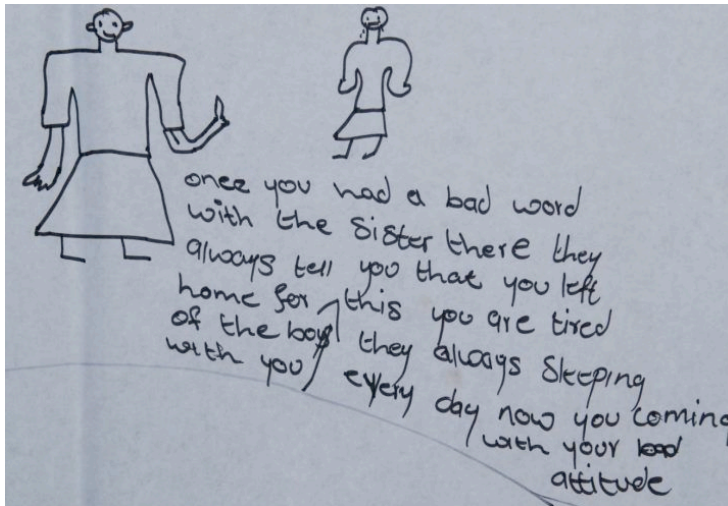 once you had a bad word
with the sister there they
always tell you that you left
home for this you are tired
of the boys they always sleeping
with you every day now you coming
with your bad
attitude